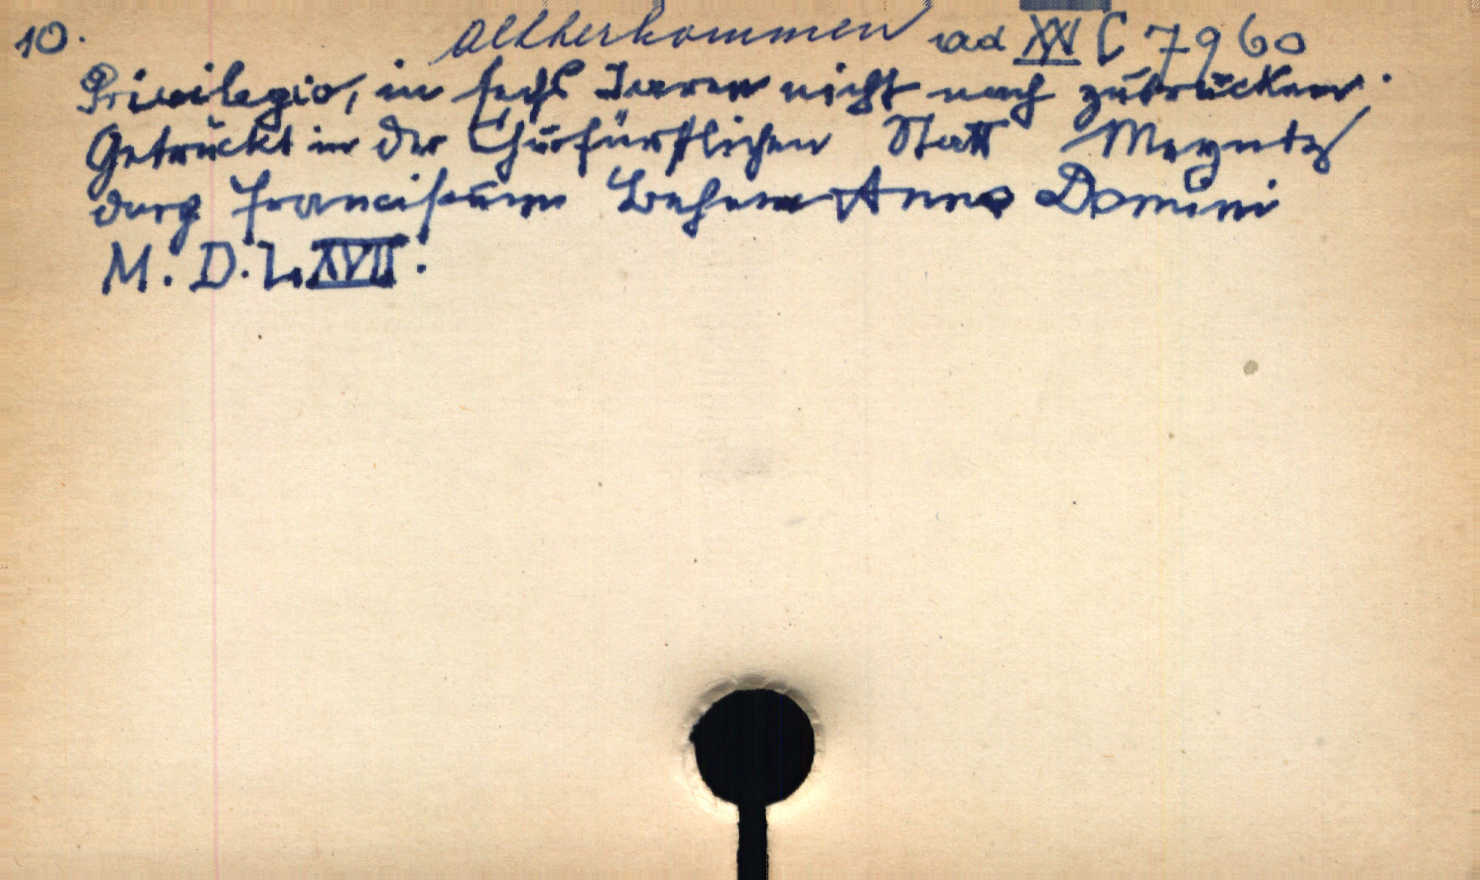 10. Altherkommen ad XXV C 7960
Privilegio, in sechs Jaren nicht nach zůdrůcken.
Getrůckt in der Churfürstlichen Statt Meyntz
durch Franciscum Behem Anno Domini
M. D. L. XVII.